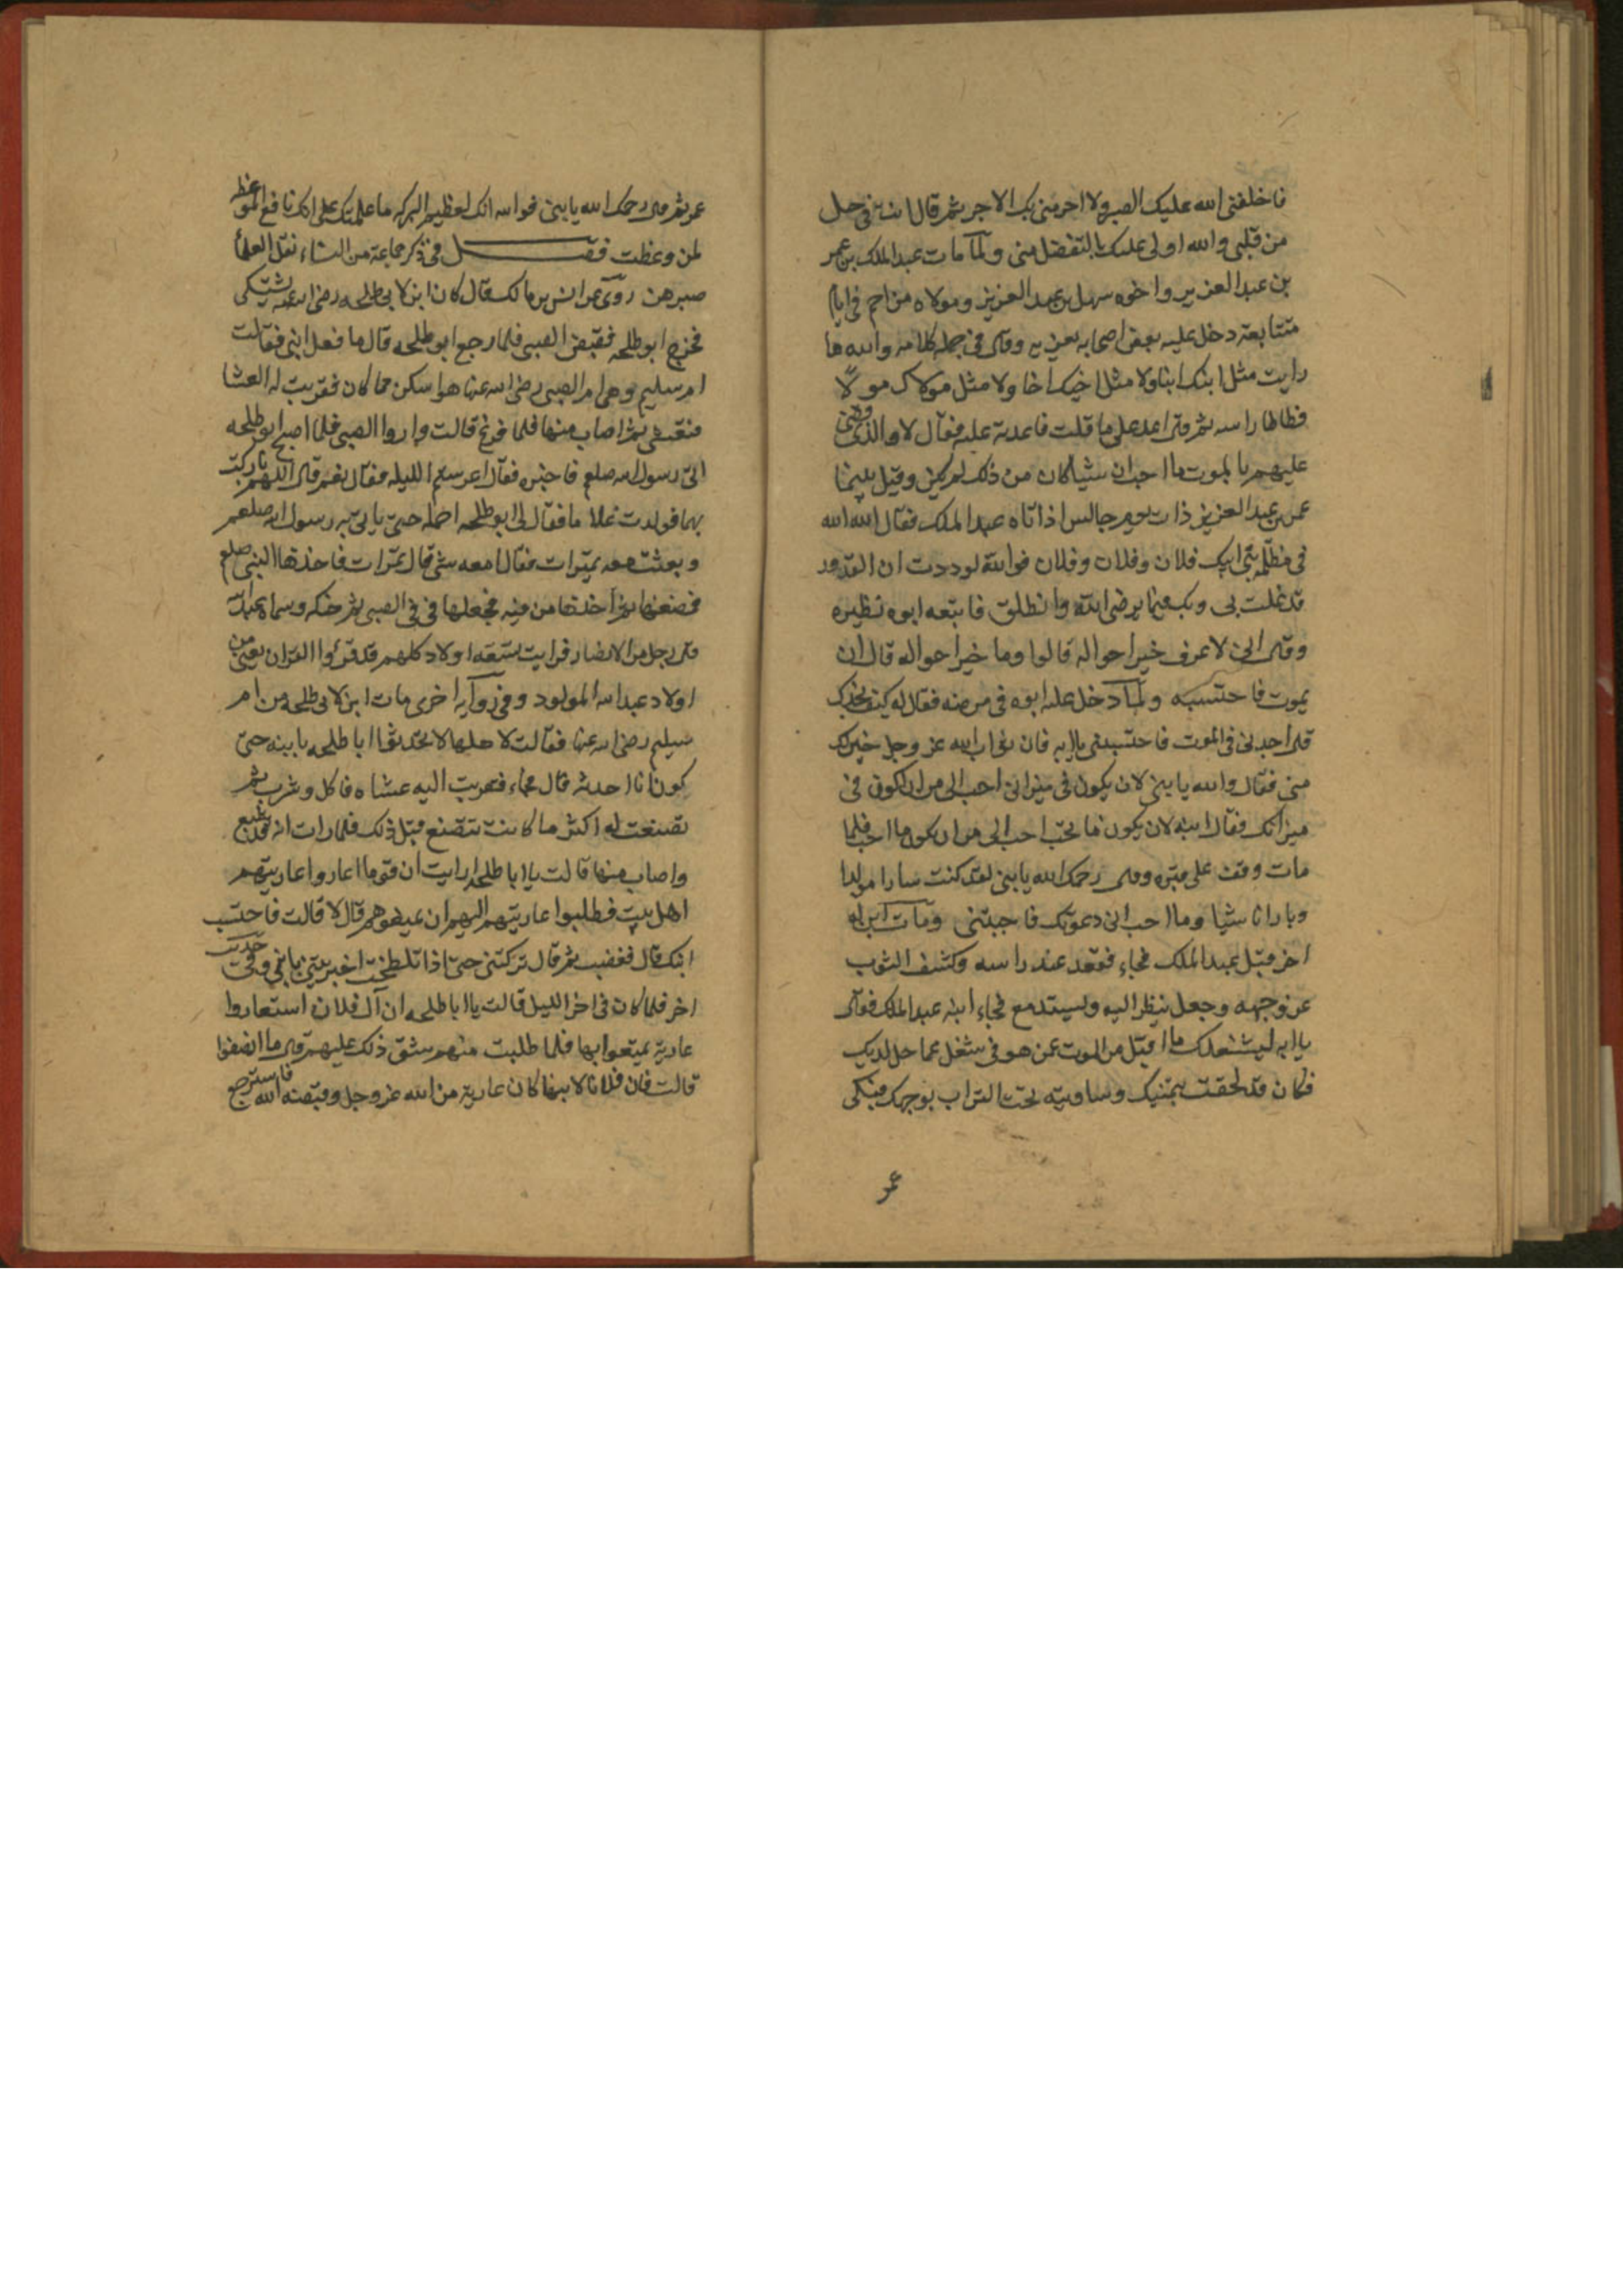 فاخلفنى الله عليك الصبر ولا احرمنى بك الاجر ثم قال انت فى حل
من قلبى والله اولى عليك بالتفضل منى ولما مات عبد الملك بن عمر
بن عبد العزيز واخوه سهل بن عبد العزيز ومولاه مزاحم فى ايام
متتابعة دخل عليه بعض اصحابه يعزيه وقال فى جملة كلامه والله ما
رايت مثل ابنك ابنا ولا مثل اخيك اخا ولا مثل مولاك مولا
فطاطا راسه ثم قال اعد على ما قلت فاعدته عليه فقال لا والذى قضى
عليهم بالموت ما احب ان شيا كان من ذلك لم يكن وقيل بينما
عمر بن عبد العزيز ذات يوم جالس اذا تاه عبد الملك فقال الله الله
فى مظلمة بنى ابيك فلان وفلان وفلان فوالله لوددت ان القدور
قد غلت بى وبك فيما يرضى الله وانطلق فاتبعه ابوه نظيره
وقال انى لاعرف خير احواله قالوا وما خير احواله قال ان
يموت فاحتسبه ولما دخل عليه ابوه فى مرضه فقال له كيف تجدك
قال اجدنى فى الموت فاحتسبنى يا ابه فان ثواب الله عز وجل خير لك
منى فقال والله يا بنى لان يكون فى ميزانى احب الى من ان اكون فى
ميزانك فقال ابنه لان يكون ما تحب احب الى من ان يكون ما احب فلما
مات وقف على قبره وقال رحمك الله يا بنى لقد كنت سارا مولدا
وبارا ناشيا وما احب انى دعوتك فاجبتنى ومات ابن له
اخر قبل عبد الملك فجاء فقعد عند راسه وكشف الثوب
عن وجهه وجعل ينظر اليه ويستدمع فجاء ابنه عبد الملك فقال
يا ابه ليشغلك ما اقبل من الموت عمن هو فى شغل عما حل لديك
فكان قد لحقت بمنيك وساويته تحت التراب بوجهك فبكى
عمر
عمر ثم قال رحمك الله يا بنى فوالله انك لعظيم البركه ما علمتك على انك نافع الموعظ
لمن وعظت فصل فى ذكر جماعة من النساء نقل العلما
صبرهن روى عن انس بن مالك قال كان ابن لابى طلحه رضى الله عنه يشتكى
فخرج ابو طلحه فقبض الصبى فلما رجع ابو طلحه قال ما فعل ابنى فقالت
ام سليم وهى ام الصبى رضى الله عنها هو اسكن مما كان فقربت له العشا
فتعشى ثم اصاب منها فلما فرغ قالت واروا الصبى فلما اصبح ابو طلحه
اتى رسول الله صلعم فاخبره فقال اعرستم الليله فقال نعم قال اللهم بارك
بهما فولدت غلاما فقال لى ابو طلحه احمله حتى ياتى به رسول الله صلعم
وبعثت معه بتمرات فقال امعه شى قال تمرات فاخذها النبى صلعم
فمضغها ثم اخذها من فيه فجعلها فى فى الصبى ثم حنكه وسماه عبد الله
قال رجل من الانصار فرايت تسعة اولاد كلهم قد قرءوا القران يعنى من
اولاد عبد الله المولود وفى رواية اخرى مات ابن لابى طلحه من ام
سليم رضى الله عنها فقالت لاهلها لا تحدثوا ابا طلحه بابنه حتى
اكون انا احدثه قال فجاء فقربت اليه عشاه فاكل وشرب ثم
تصنعت له اكثر ما كانت تتصنع قبل ذلك فلما رات انه قد شبع
واصاب منها قالت يا ابا طلحه ارايت ان قوما اعاروا عاريتهم
اهل بيت فطلبوا عاريتهم الهم ان يمنعوهم قال لا قالت فاحتسب
ابنك قال فغضب ثم قال تركتنى حتى اذا تلطخت اخبرتنى بابنى وفى حديث
اخر فلما كان فى اخر الليل قالت يا ابا طلحه ان آل فلان استعاروا
عارية تمتعوا بها فلما طلبت منهم شق ذلك عليهم قال ما انصفوا
قالت فان فلانا لابنها كان عارية من الله عز وجل وقبضه الله فاسترجع